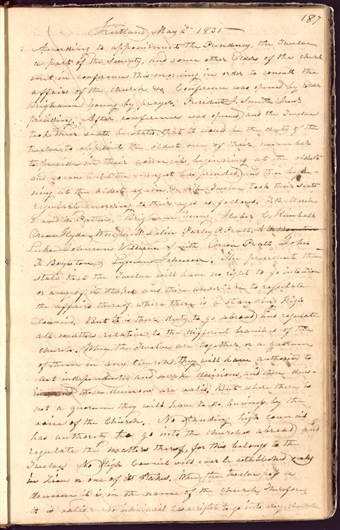 187
Kirtland May 2d 1835
According to appointment the Presidency, the Twelve
a part of the Seventy, and some other Elders of the church
met in conference this morning in order to consult the
affairs of the church &c. Conference was opened by Elder
Brigham Young by prayer. President J. Smith Junr
presiding. After conference was opened and the Twelve
took their seats, he stated that it would be the duty of the
twelve to appoint the oldest one of their number
to preside in their councils, beginning at the oldest
and so on until the youngest has presided, and then begin-
ning at the oldest again &c. The Twelve took their seats
regularly according to their ages as follows. T. B. Marsh
D. W. Patten, Brigham Young, Heber C. Kimball
Orson Hyde, Wm. E. McLelin Parley P. Pratt,
Luke Johnson William Smith Orson Pratt, John
F. Boynton & Lyman Johnson. The president then
stated that the Twelve will have no right to go into Zion
or any of its stakes and there undertake to regulate
the affairs thereof where there is a standing high
Council. But it is their duty to go abroad and regulate
all matters relative to the different branches of the
church. When the Twelve are together, or a quorum
of them in any church, they will have authority to
act independently and make decisions, and those decisi-
ons will be valid. But where there is
not a quorum they will have to do business by the
voice of the Church. No standing high Council
has authority to go into the churches abroad and
regulate the matters thereof, for this belongs to the
Twelve. No high Council will ever be established only
in Zion or one of its stakes. When the twelve pass a
decision it is in the name of the church, therefore
it is valid.